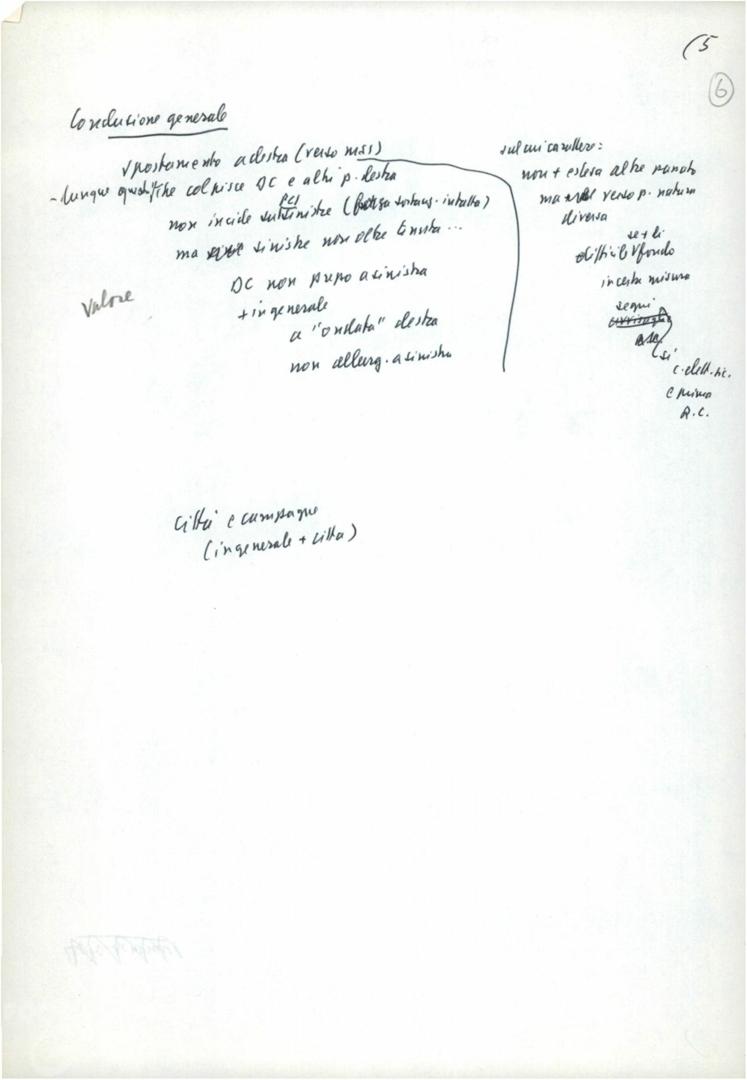 (5
6
Conclusione generale
spostamento a destra (verso MSI)
- dunque che colpisce DC e altri p. destra
PCI
non incide sinistre (forza sostanz. intatta)
ma sinistre non oltre tenuta ...
DC non a sinistra
+ in generale
a "ondata" destra
non allarg. a sinistra
Valore
sul cui carattere:
non + estesa altre
ma verso p. natura
diversa
difficile fondo
in certa misura
segni
si
c. elett. sic.
e prima
R.C.
Città e campagne
(in generale + città)